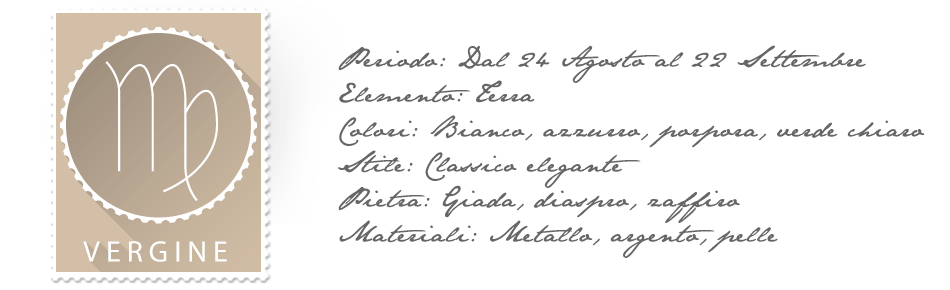 VERGINE
Periodo: Dal 24 Agosto al 22 Settembre
Elemento: Terra
Colori: Bianco, azzurro, porpora, verde chiaro
Stile: Classico elegante
Pietra: Giada, diaspro, zaffiro
Materiali: Metallo, argento, pelle